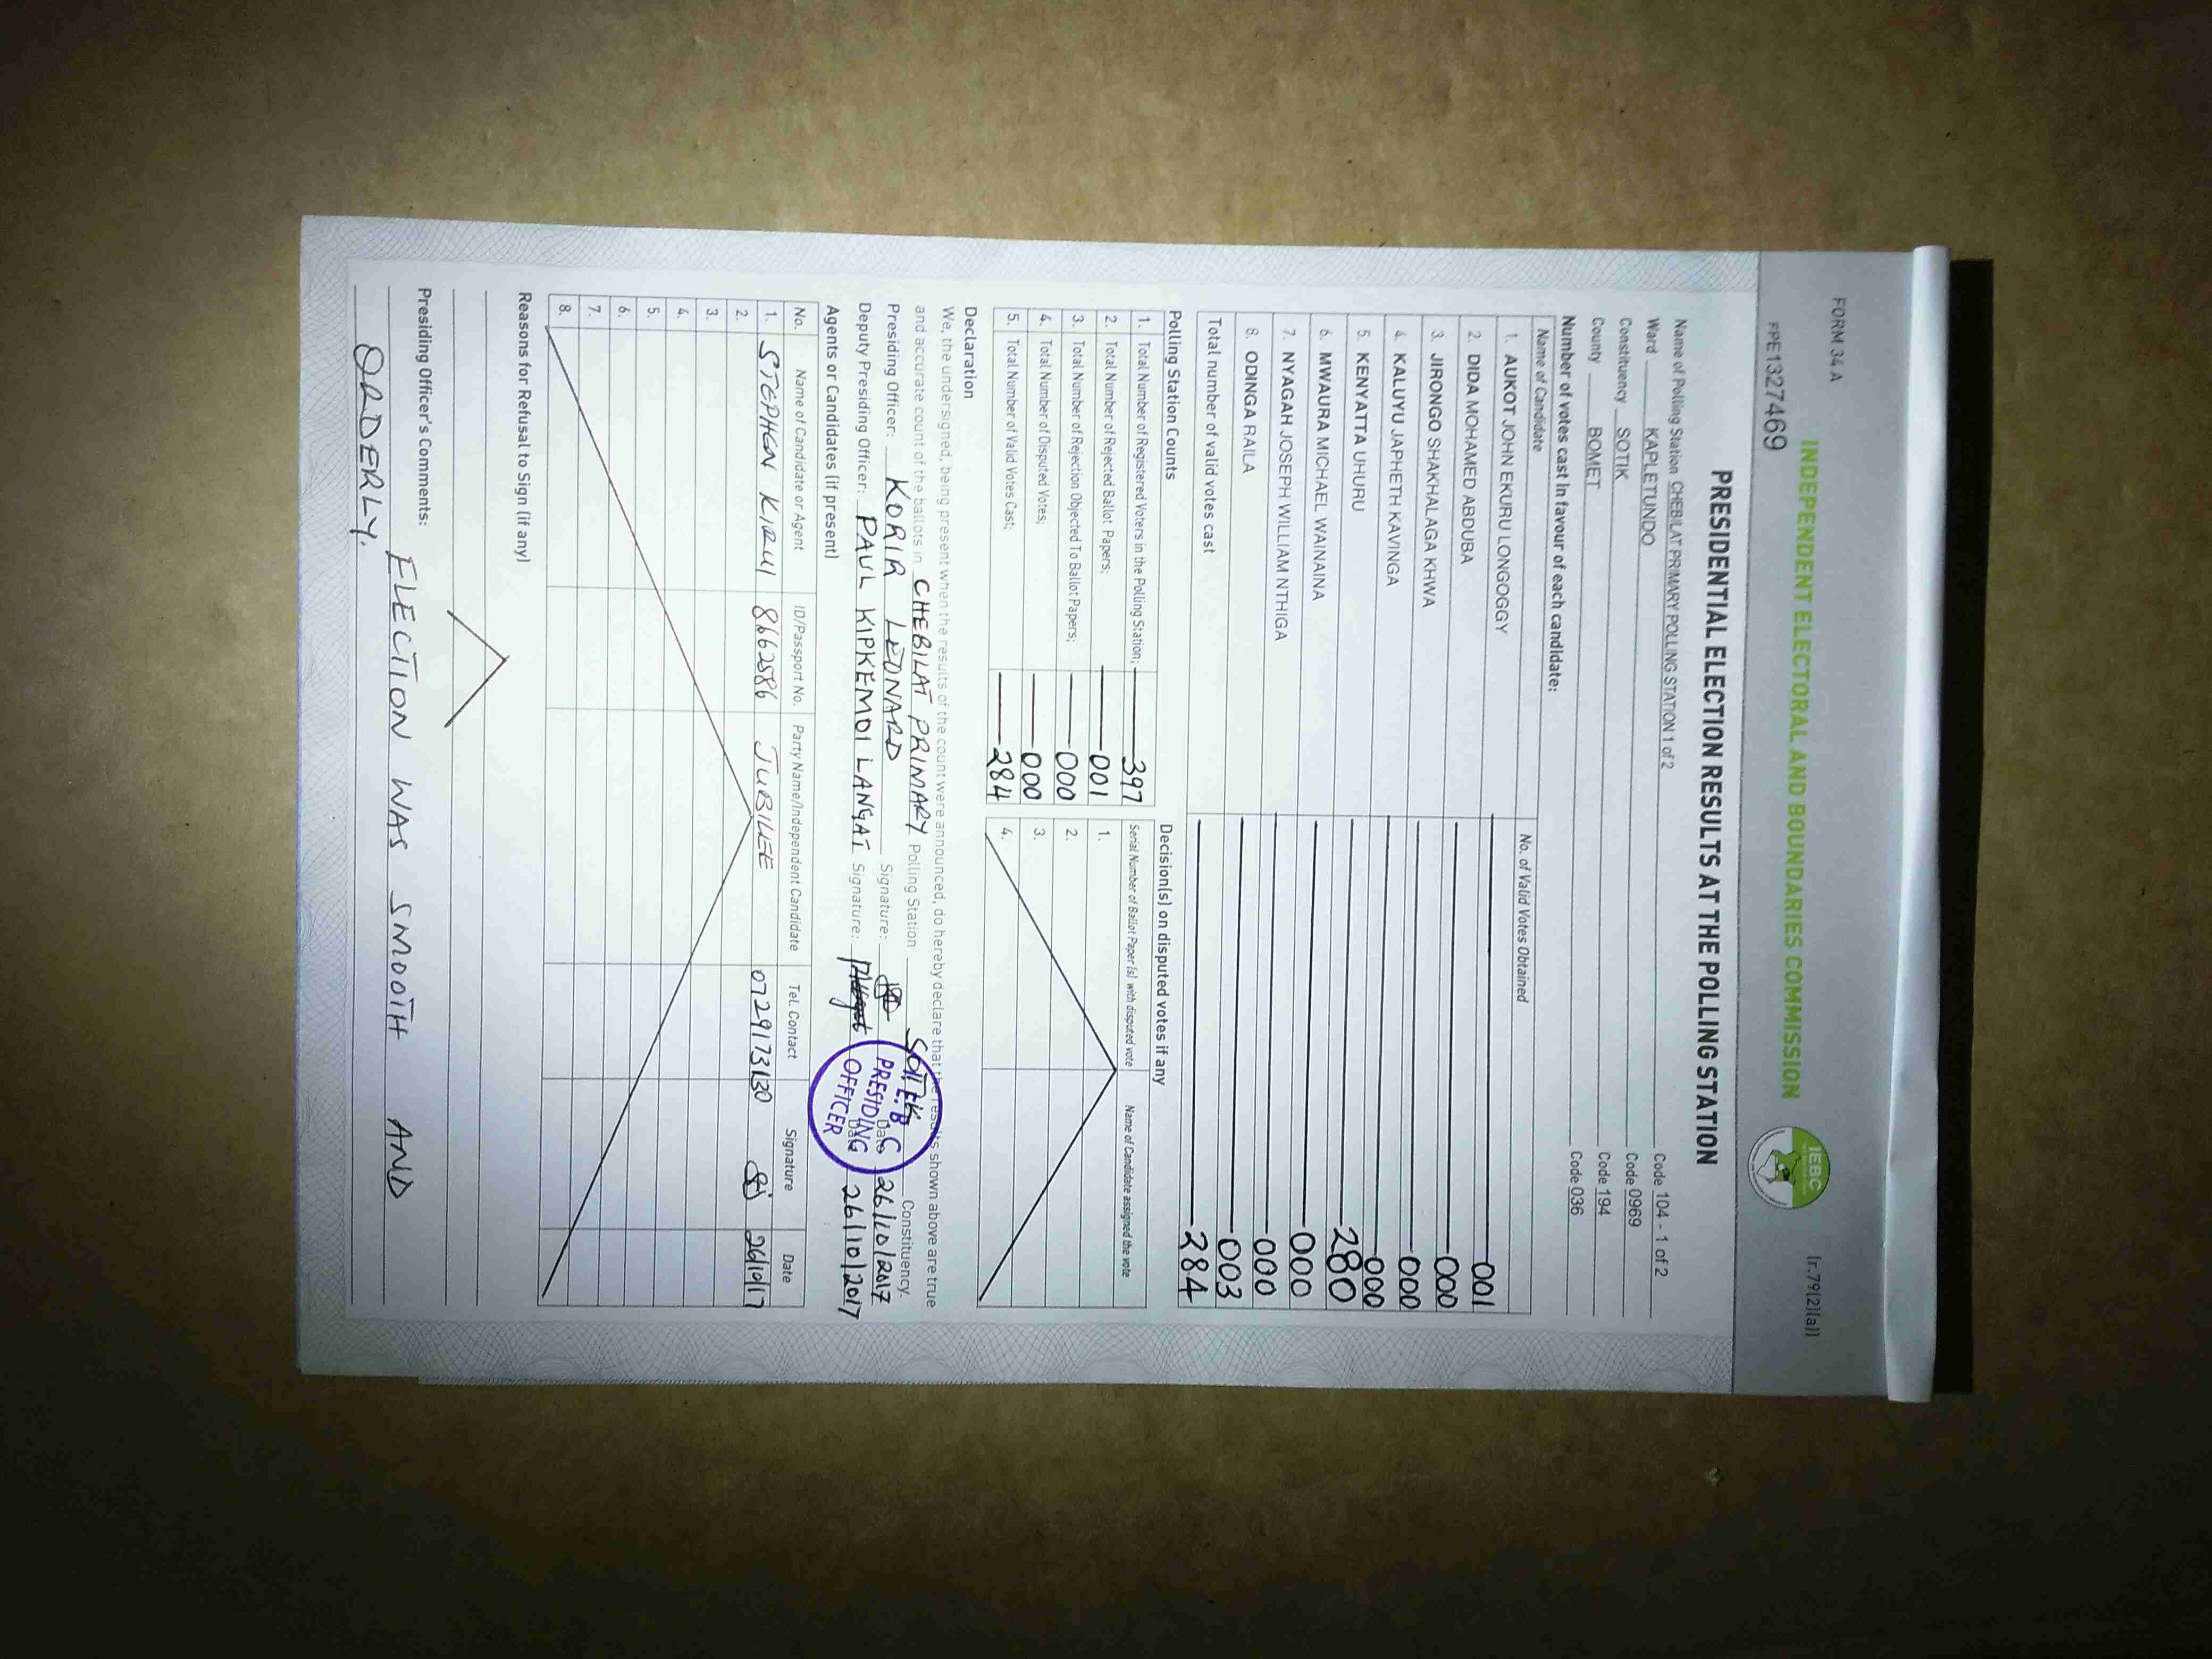 FORM 34 A
(r.79(2)(a))
INDEPENDENT ELECTORAL AND BOUNDARIES COMMISSION
IEBC
PPE1327469
PRESIDENTIAL ELECTION RESULTS AT THE POLLING STATION
Name of Polling Station CHEBILAT PRIMARY POLLING STATION 1 of 2 Code 104 - 1 of 2
Ward KAPLETUNDO Code 0969
Constituency SOTIK Code 194
County BOMET Code 036
Number of votes cast in favour of each candidate:
Name of Candidate No. of Valid Votes Obtained
1. AUKOT JOHN EKURU LONGOGGY 001
2. DIDA MOHAMED ABDUBA 000
3. JIRONGO SHAKHALAGA KHWA 000
4. KALUYU JAPHETH KAVINGA 000
5. KENYATTA UHURU 280
6. MWAURA MICHAEL WAINAINA 000
7. NYAGAH JOSEPH WILLIAM NTHIGA 000
8. ODINGA RAILA 003
Total number of valid votes cast 284
Polling Station Counts
1. Total Number of Registered Voters in the Polling Station; 397
2. Total Number of Rejected Ballot Papers; 001
3. Total Number of Rejection Objected To Ballot Papers; 000
4. Total Number of Disputed Votes; 000
5. Total Number of Valid Votes Cast; 284
Decision(s) on disputed votes if any
Serial Number of Ballot Paper (s) with disputed vote Name of Candidate assigned the vote
1.
2.
3.
4.
Declaration
We, the undersigned, being present when the results of the count were announced, do hereby declare that the results shown above are true
and accurate count of the ballots in CHEBILAT PRIMARY Polling Station SOTIK Constituency.
Presiding Officer: KORIR LEONARD Signature: Date 26/10/2017
Deputy Presiding Officer: PAUL KIPKEMOI LANGAT Signature: Date 26/10/2017
I.E.B.C
PRESIDING
OFFICER
Agents or Candidates (if present)
No. Name of Candidate or Agent ID/Passport No. Party Name/Independent Candidate Tel. Contact Signature Date
1. STEPHEN KIRUI 8662586 JUBILEE 0729173130 26/10/17
2.
3.
4.
5.
6.
7.
8.
Reasons for Refusal to Sign (if any)
Presiding Officer's Comments: ELECTION WAS SMOOTH AND
ORDERLY.